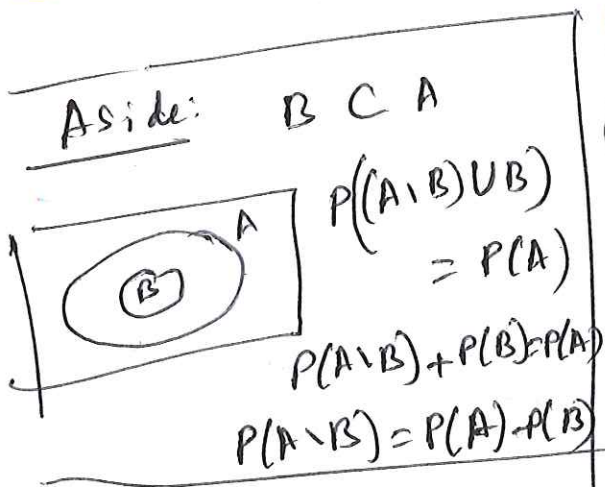 Aside: B ⊂ A
A
B
P((A\B)∪B)
= P(A)
P(A\B)+P(B)=P(A)
P(A\B) = P(A)-P(B)